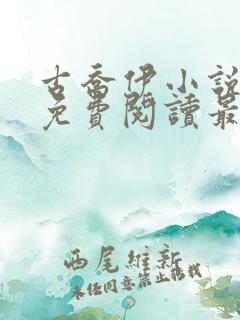 古喬伊小說
免費閱讀最
西尾維新
未經同意禁止轉載